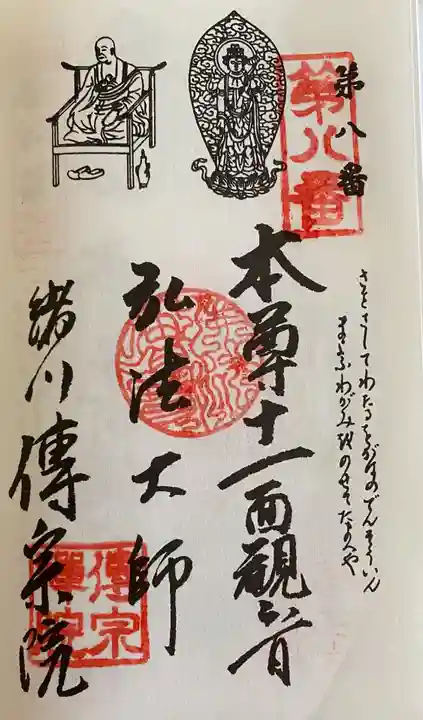 第八番
第八番
さとさしてわたるをがわのでんそういん
まよふわがみをのせてたまへや
本尊十一面観音
弘法大師
緒川傳宗院
傳宗
禅院